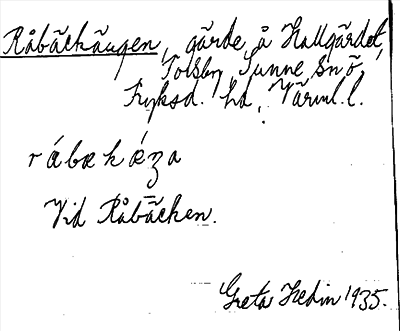 Råbäckängen, gärde å Hallgärdet,
Tolsby, Sunne sn ö,
Fryksd. hd, Värml. l.
rábækæŋa
Vid Råbäcken.
Greta Hedin 1935.